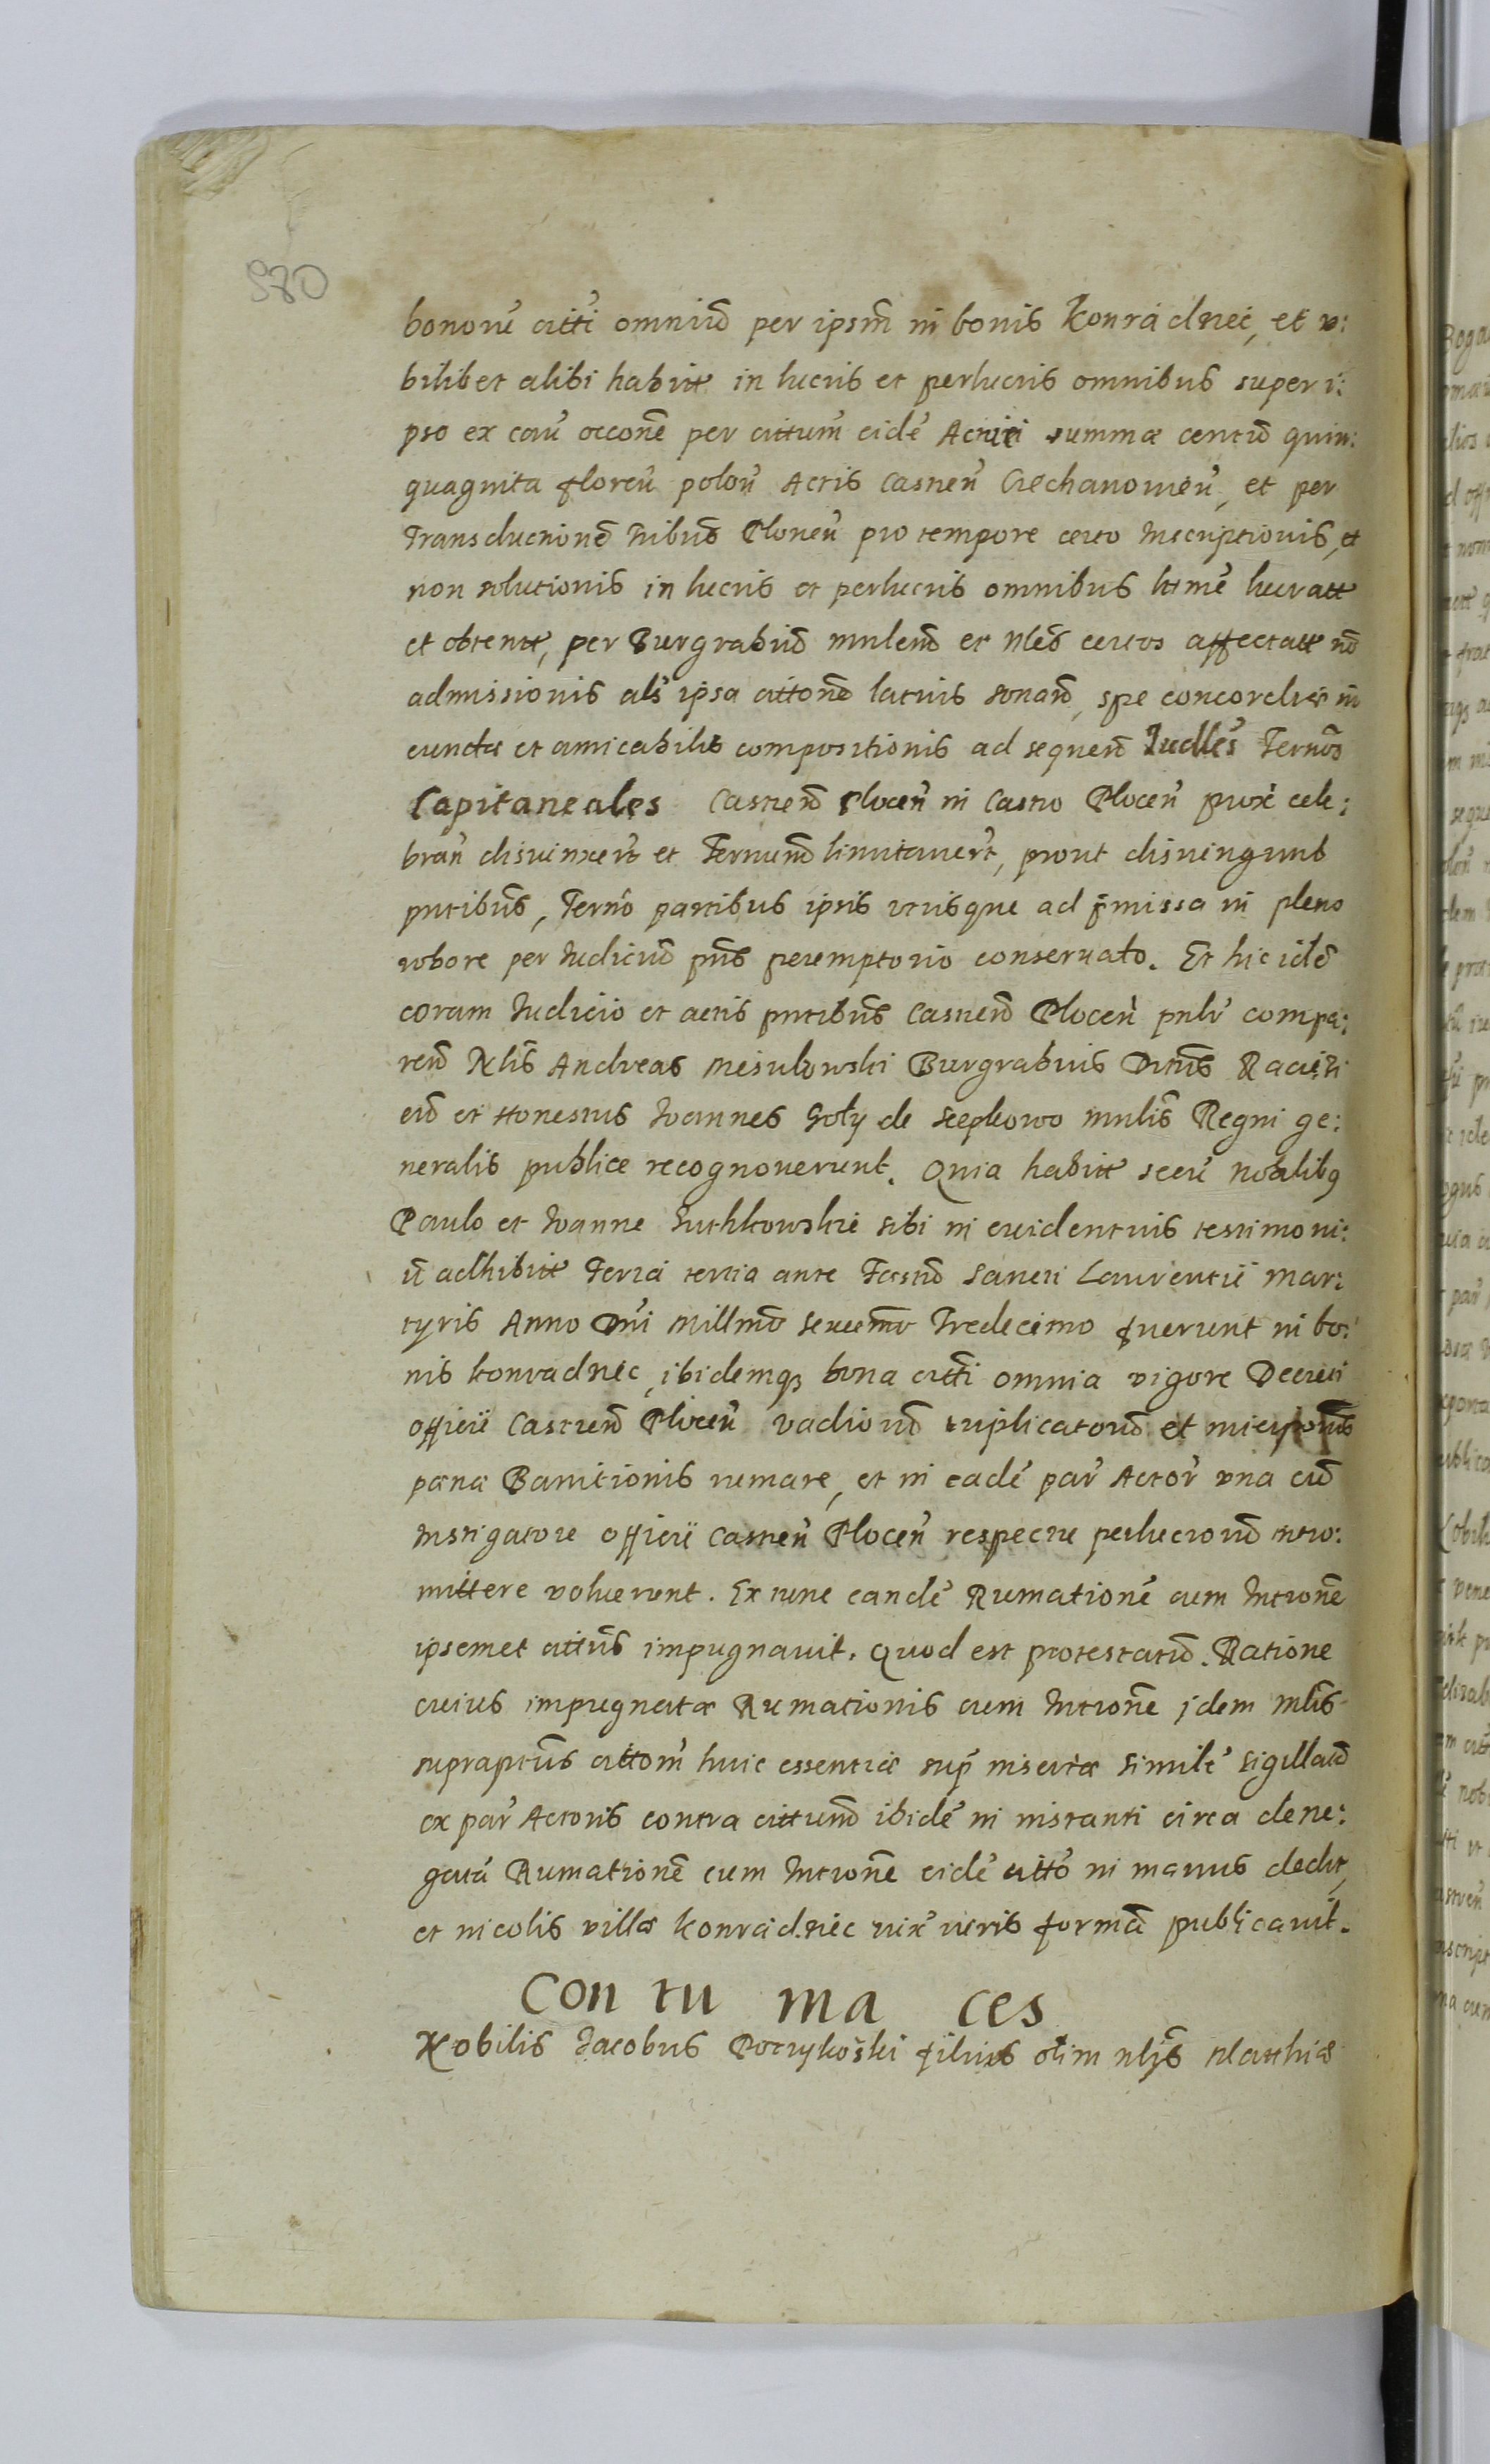 980
bonorũ citti omniũ per ipsm̃ in bonis Konradnec, et v:
bilibet alibi habitt in lucris et perlucris omnibus super i:
pso ex cau occone per cittum eide Actrici summæ centũ quin:
quaginta floreñ poloñ Actis Castreñ Ciechanouieñ, et per
Transductione Tribus Ploneñ pro tempore certo Inscriptionis, et
non solutionis in lucris et perlucris omnibus ltme lucratt
et obtentt, per Burgrabiũ mnlem et Nles certos affectatt nõ
admissionis als ipsa cittone latius sonañ, spe concordiæ in
eundæ et amicabilis compositionis ad sequeñ Iudlles Termos
Capitaneales Castreñ Ploceñ in Castro Ploceñ prox cele:
brañ disuinxert et Terminũ limitauert, prout disuingunt
pntibus, Termo partibus ipsis vtrisque ad pmissa in pleno
robore per Iudiciũ pns peremptorio conseruato. Et hic idẽ
coram Iudicio et actis pntibus Castreñ Ploceñ pnlr compa:
reñ Nlis Andreas Burgrabius
et Honestus Ioannes Goły de mnlis Regni ge:
neralis publice recognouerunt. Quia habitt secũ nobalibq
Paulo et Ioanne Iuthkowskie sibi in euidentius testimoni:
ũ adhibitt Feria tertia ante Festũ Sancti Laurentii mar:
tyris Anno Dni Millmo Sexcemo Tredecimo fuerunt in bo:
nis Konradnec, ibidemq bona citti omnia vigore Decreti
officii Castreñ Ploceñ vadiorũ triplicatorũ et
pæna Banitionis rumare, et in eade par Actor vna cũ
Instigatore officii Castreñ Ploceñ respectu perlucrorũ intro:
mittere voluerunt. Ex tunc eande Rumatione cum Introne
ipsemet cittus impugnauit. Quod est protestatũ. Ratione
cuius impugnatæ Rumationis cum Introne idem mnlis
supraptus cittom huic essentiæ sup insertæ simile sigillatũ
ex par Actoris contra cittum ibide in instanti circa dene:
gatã Rumatione cum Introne eide citto in manus dedit,
et incolis villæ Konradnec iux iuris formã publicauit.
Con tu ma ces
Nobilis Iacobus filius olim nlis Matthiæ